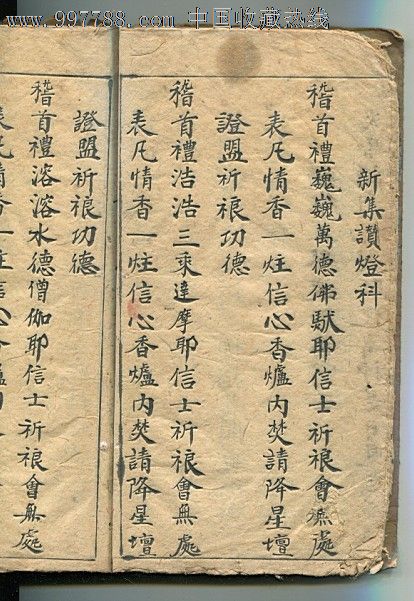 www.997788.com 中国收藏热线
新集讃燈科
稽首禮巍巍萬德佛馱耶信士祈禳會無處
表凡情香一炷信心香爐内焚請降星壇
證盟祈禳功德
稽首禮浩浩三乘達摩耶信士祈禳會無處
表凡情香一炷信心香爐内焚請降星壇
證盟祈禳功德
稽首禮溶溶水德僧伽耶信士祈禳會無處